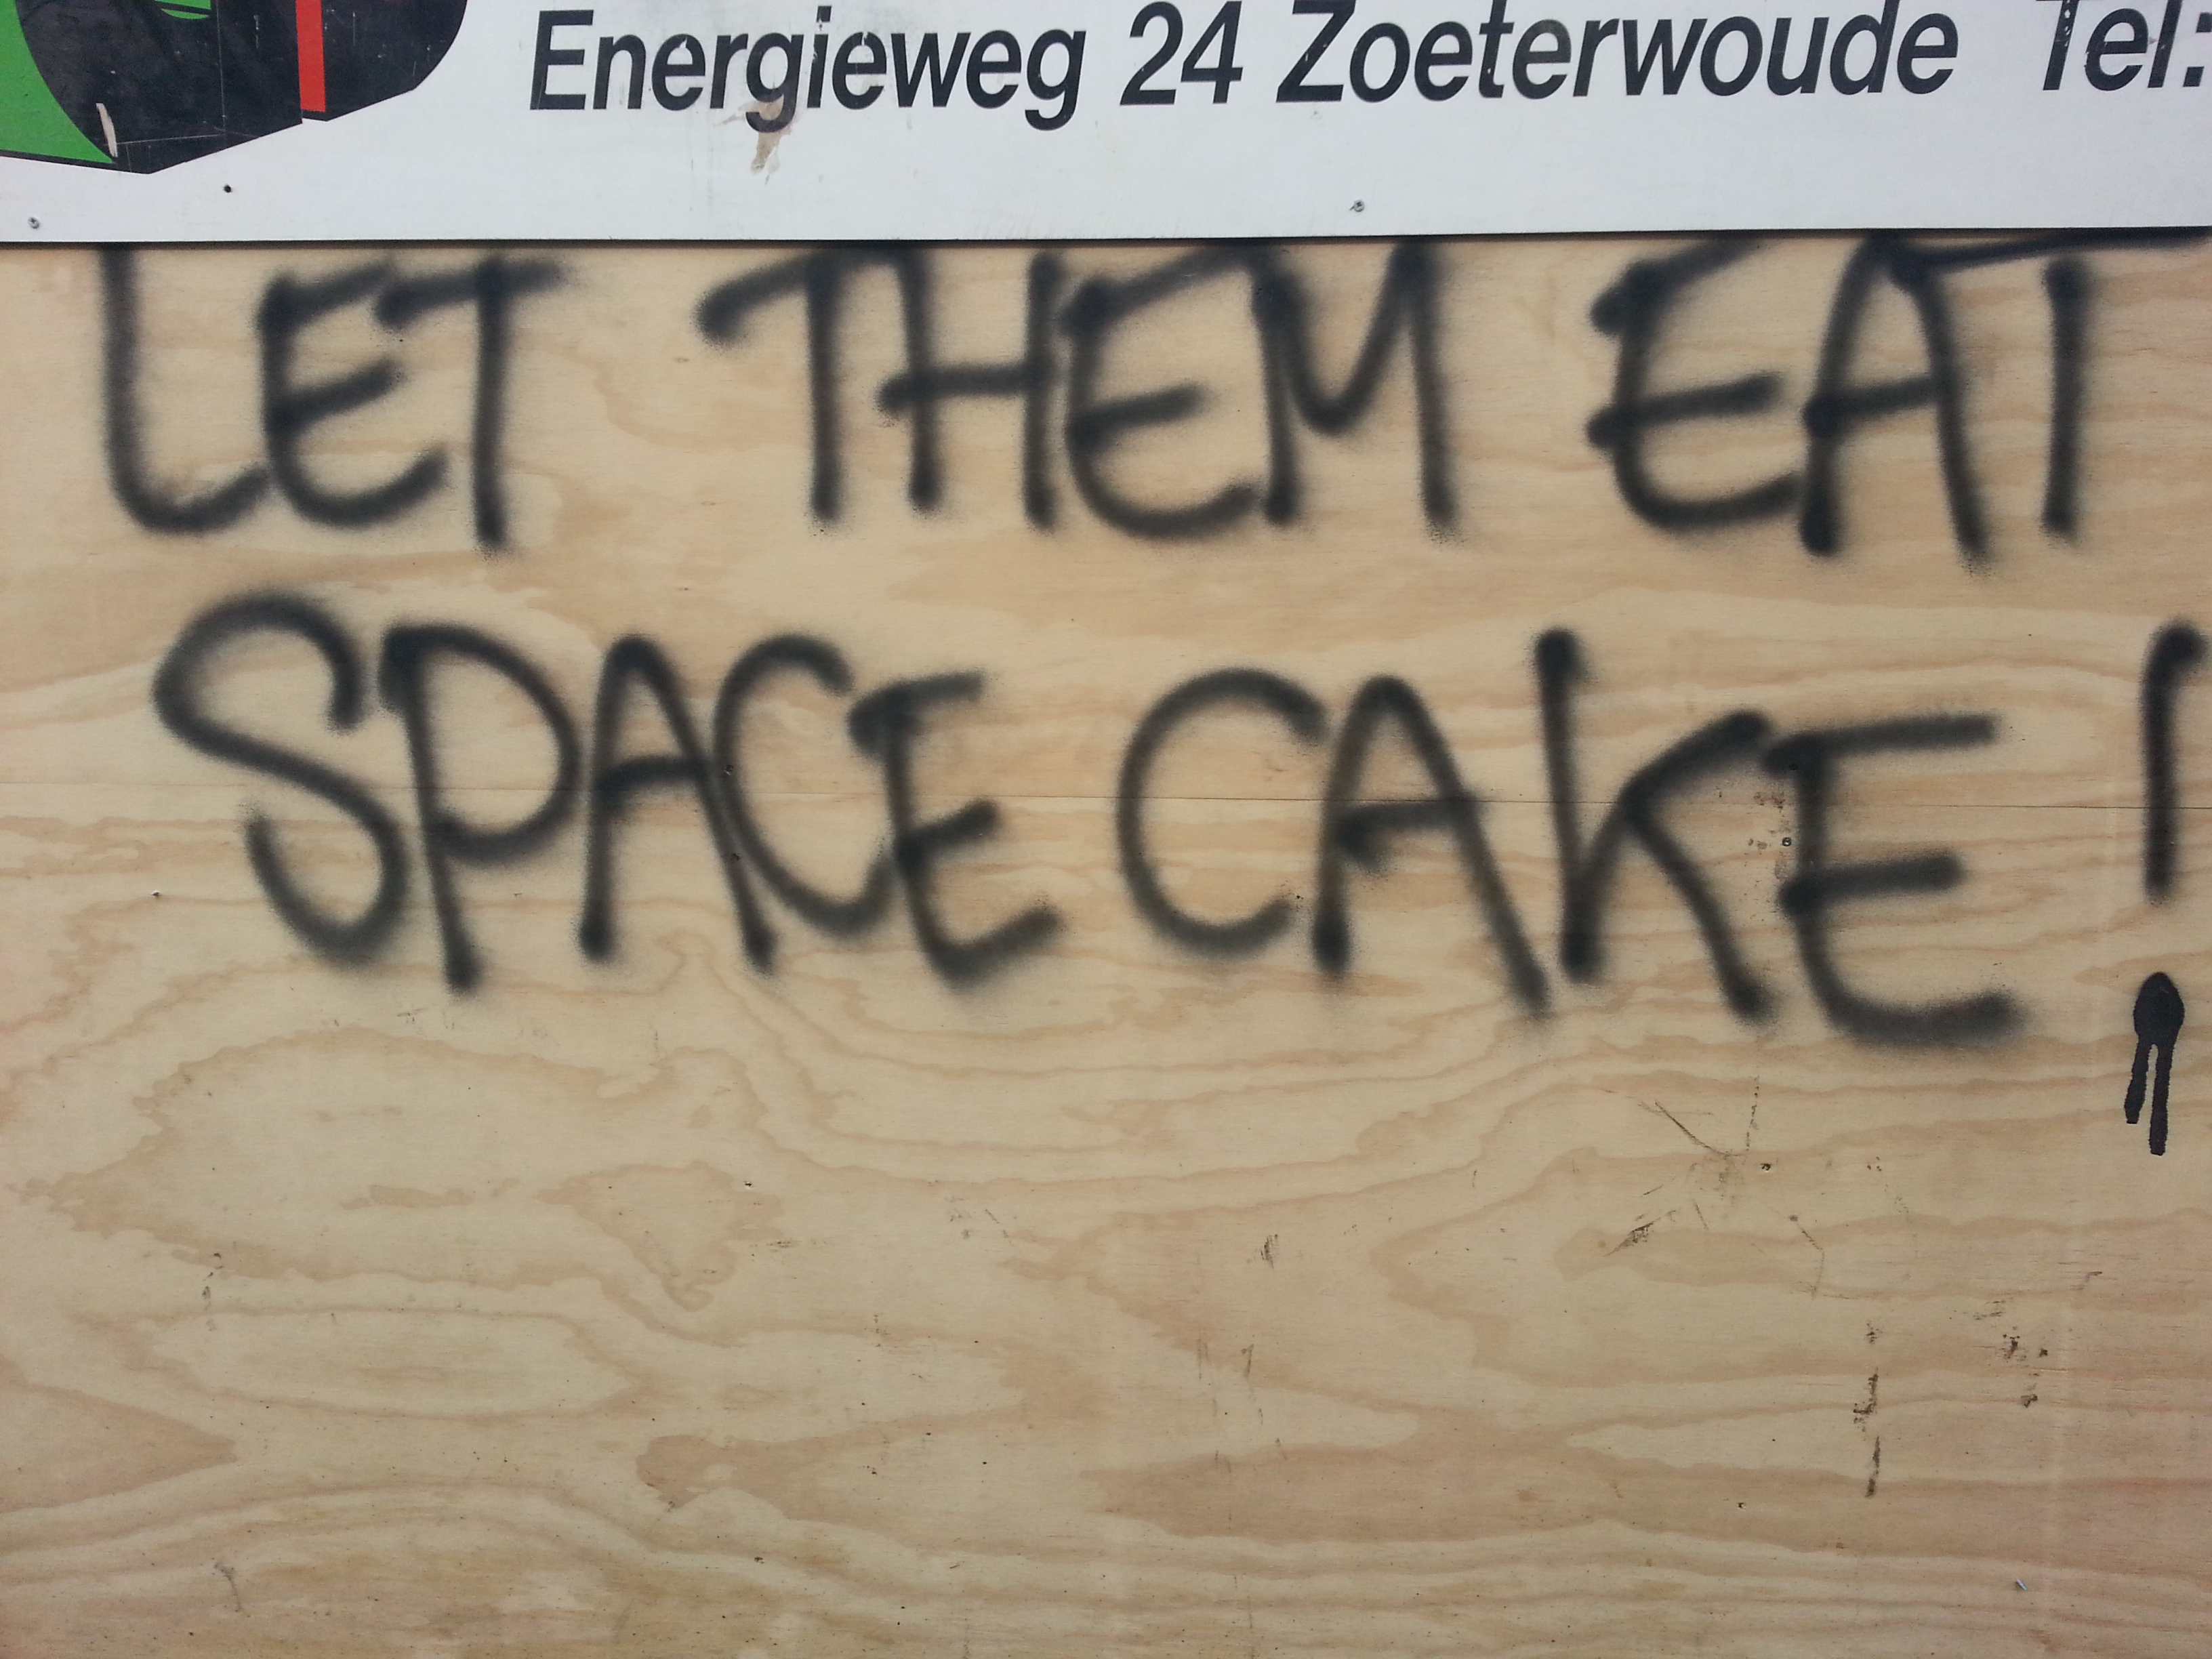 Energieweg 24 Zoeterwoude Tel:
LET THEM EAT
SPACE CAKE!